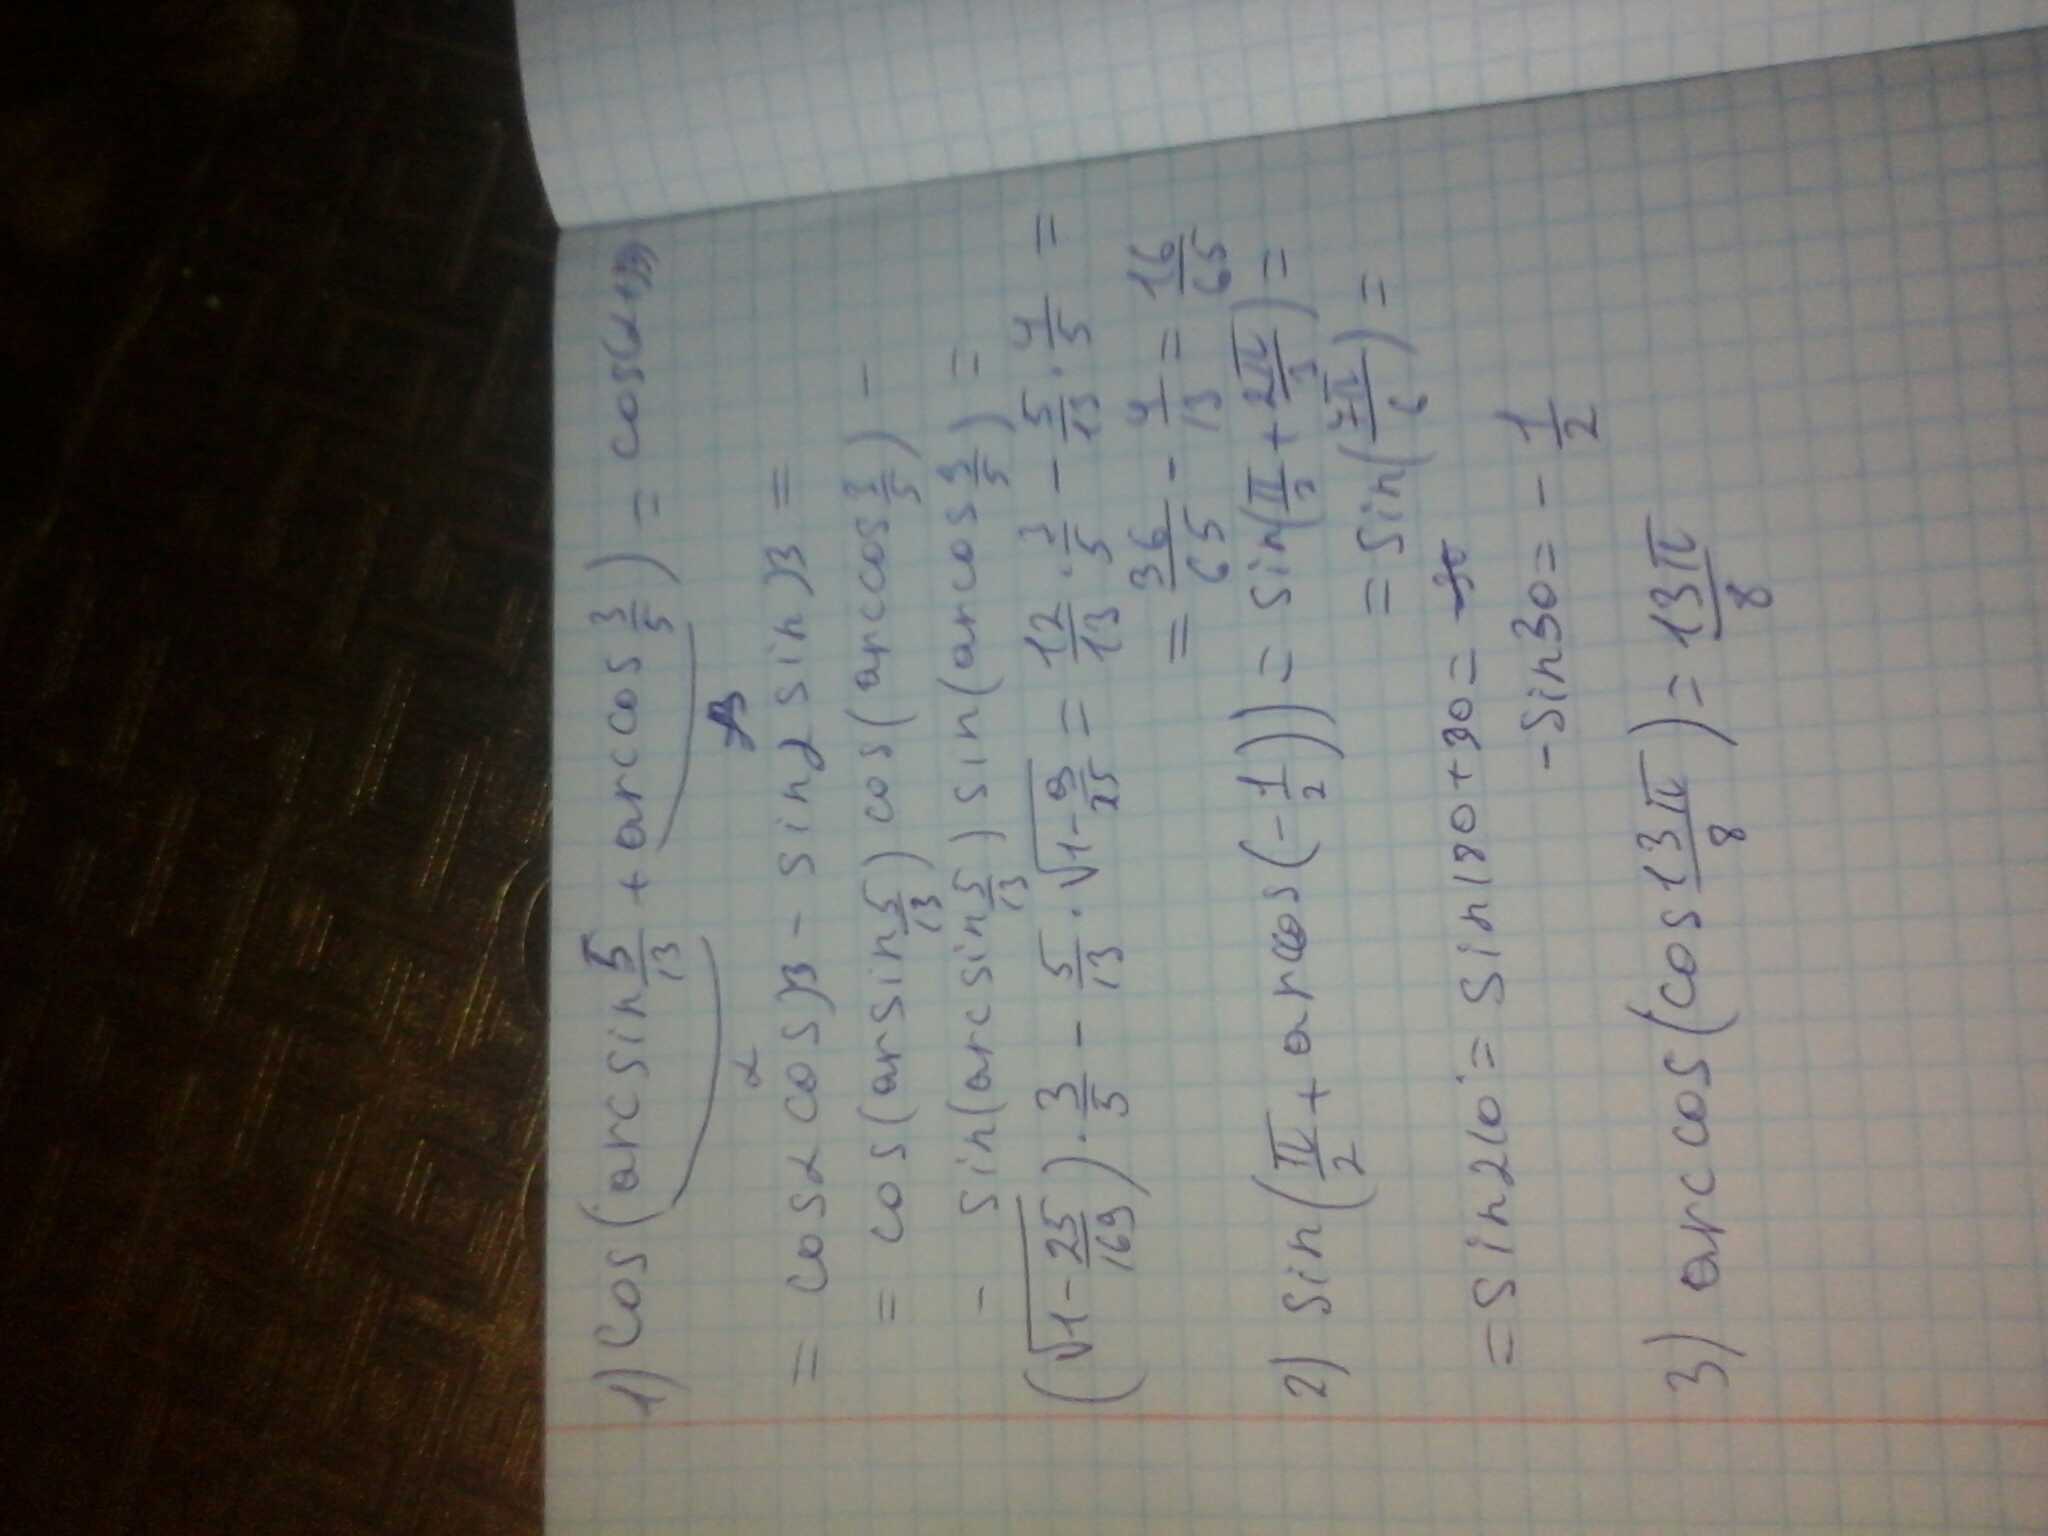 1) cos(arcsin 5/13 + arccos 3/5) = cos(α+β)
α β
= cosα cosβ - sinα sinβ =
= cos(arsin 5/13) cos(arccos 3/5) -
- sin(arcsin 5/13) sin(arcos 3/5) =
(√(1-25/169)) · 3/5 - 5/13 · √(1-9/25) = 12/13 · 3/5 - 5/13 · 4/5 =
= 36/65 - 4/13 = 16/65
2) sin(π/2 + arccos(-1/2)) = sin(π/2 + 2π/3) =
= sin(7π/6) =
= sin210° = sin180+30 =
-sin30 = -1/2
3) arccos(cos 13π/8) = 13π/8